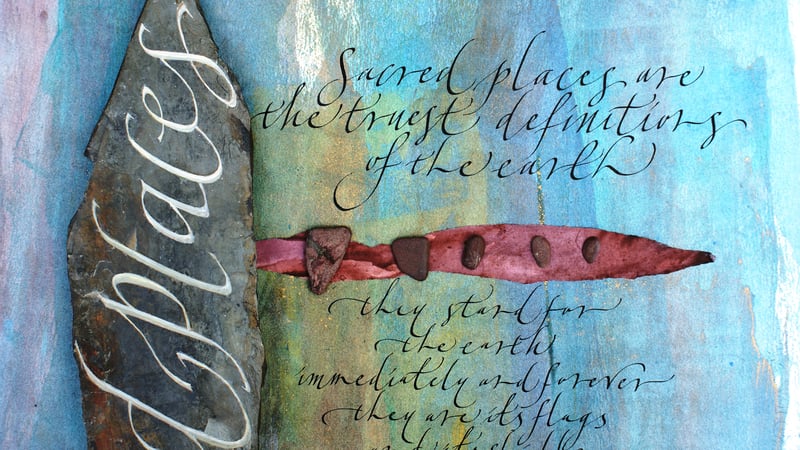 d places
Sacred places are
the truest definitions
of the earth
they stand for
the earth
immediately and forever
they are its flags